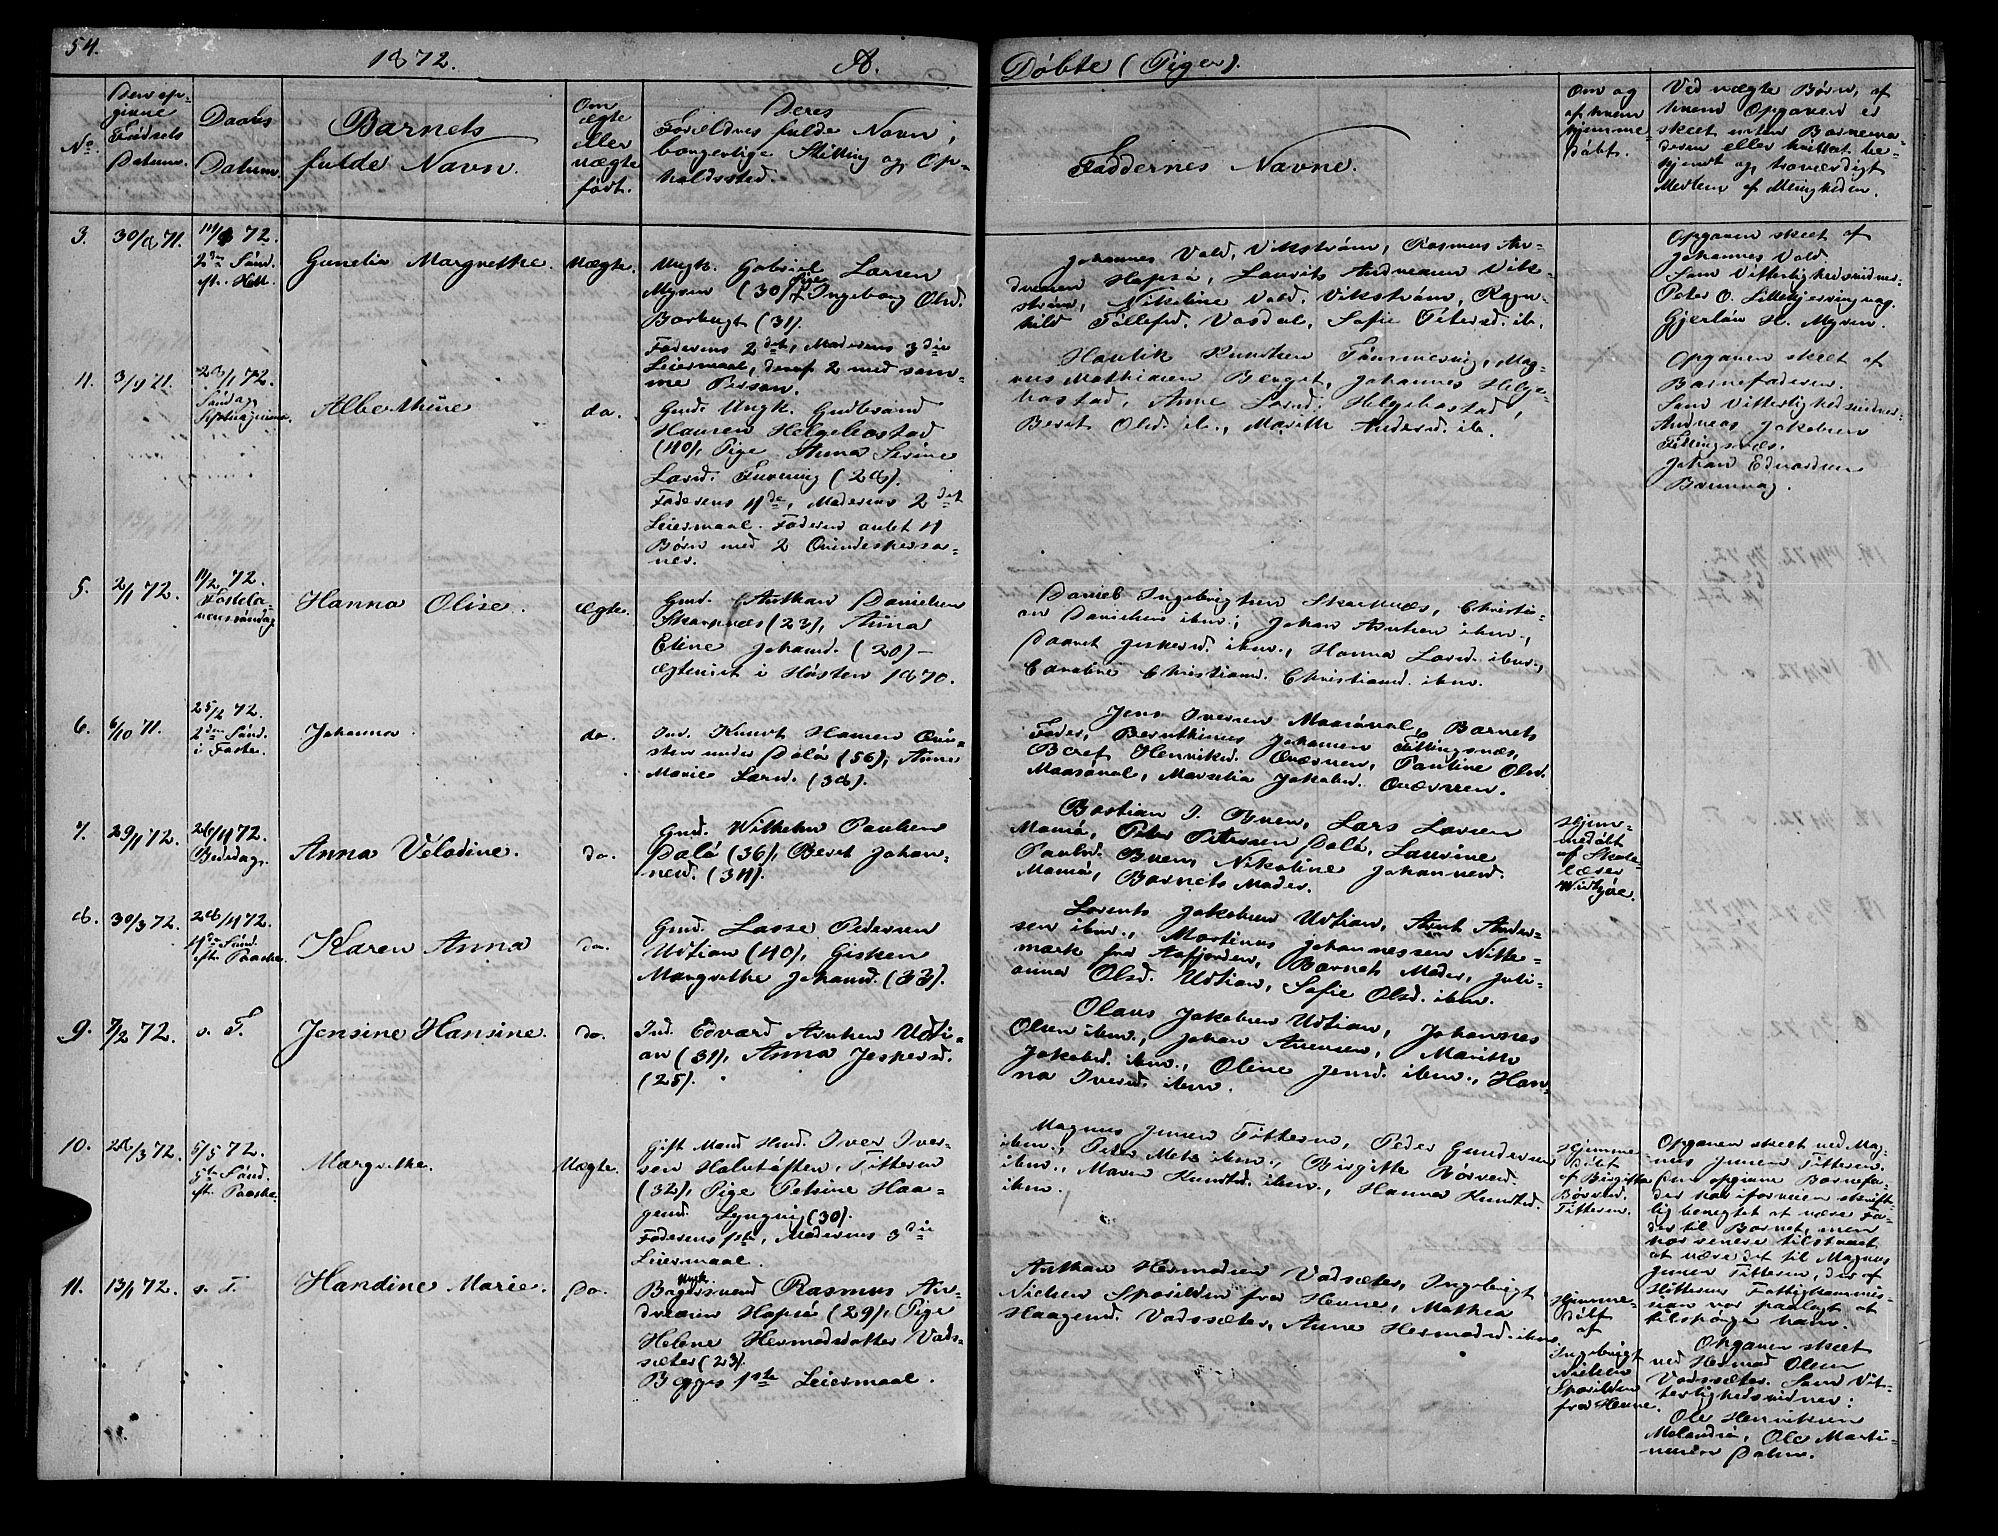 54.
1872.
A.
Døbte (Piger).
No
Den op-
givne
Fødsels
Datum.
Daabs
Datum.
Barnets
fulde Navn.
Om
ægte
eller
uægte
født.
Deres
Forældres fulde Navn,
borgerlige Stilling og Op-
holdssted.
Faddernes Navne.
Om og
af hvem
hjemme-
døbt.
Ved uægte Børn, af
hvem Opgaven er
skeet enten Barnemo-
deren eller hvilket be-
kjendt og troværdigt
Medlem af Menigheden.
3.
30/8 71.
72.
2den Sønd.
eft. Hell.
Gunelia Margrethe.
Uægte.
Ungk. Gabriel Larsen
Myren (30), Pige Ingeborg Olsd.
Borbugt (31).
Faderens 2det, Moderens 3die
Leiermaal, deraf 2 med sam-
me Person.
Johannes Vold, Vikstrøm, Rasmus An-
dresen Hopsø, Laurits Andreasen Vik-
strøm, Nikoline Vold, Vikstrøm, Ragn-
hild Tøllefsd. Vasdal, Sofie Petersd. ib.
Opgaven skeet af
Johannes Vold.
Som Vitterlighedsvidner
Peter O. Lillekjerringvaag.
Gjerløu H. Myren.
4.
3/9 71.
28/1 72.
Søndag
Septuagesima.
Alberthine
do.
Gmd. Ungk. Gudbrand
Hansen Helgebostad
(40), Pige Anna Serine
Larsd. (28).
Faderens 4de, Moderens 2det
Leiermaal. Faderen avlet 4
Børn med 2 Qvindesperso-
ner.
Havtik Knudtsen Tømmervig, Mag-
nus Mathiasen Berget, Johannes Helge-
bostad, Anne Larsd. Helgebostad,
Beret Olsd. ib., Marith Andersd. ib.
Opgaven skeet af
Barnefaderen.
Som Vitterlighedsvidner
Andreas Jakobsen
Fillingsnæs.
Johan Edvardsen
5.
2/1 72.
11/2 72.
Fastela-
vnssøndag
Hanna Olise.
ægte.
Gmd. Anthon Danielsen
Skarpnæs (23), Anna
Eline Johansd. (20) –
Ægteviet i Høsten 1870.
Daniel Ingebrigtsen Skarpnæs, Christi-
an Danielsen ibm., Johan Arntsen ibm.,
Daaret Jespersd. ibm., Hanna Larsd. ibm.,
Caroline Christiansd. Christiansd. ibm.
6.
6/10 71.
25/2 72.
2den Sønd.
i Faste.
Johanna.
do.
Ind. Knudt Hansen Qvi-
sten under Dolø (56), Anne
Marie Larsd. (38).
Jens Iversen Maasøval, Barnets
Fader, Bernthinus Johansen Fillingsnæs,
Beret Henriksd. Qværnen, Pauline Olsd.
Maasøval, Marselia Jakobsd. Qværnen.
7.
29/1 72.
26/4 72.
Bededag.
Anna Velodine.
do.
Gmd. Wilhelm Paulsen
Dolø (36), Beret Johan-
nesd. (34).
Bastian I. Buen, Lars Larsen
Mamø, Peter Petersen Dolø, Laurine
Paulsd. Buens, Nikoline Johannesd.
Mamø, Barnets Moder.
Hjem-
medøbt
af Skole-
lærer
Widtzøe.
8.
30/3 72.
28/4 72.
4de Sønd.
eft. Paaske.
Karen Anna
do.
Gmd. Lasse Pedersen
Udtian (40), Gisken
Margrethe Johansd. (33).
Lorents Jakobsen Udtian, Arnt Ander-
sen ibm., Martinus Johannessen Nitte-
mark fra Aafjorden, Barnets Moder, Juli-
anna Olsd. Udtian, Sofie Olsd. ibm.
9.
7/2 72.
s. T.
Jensine Hansine.
do.
Ind. Edvard Arntsen Udti-
an (31), Anna Jespersd.
(25).
Olaus Jakobsen Udtian, Johannes
Olsen ibm., Johan Arnesen, Marith
Jakobsd. ibm., Oline Jensd. ibm., Han-
na Iversd. ibm.
10.
28/3 72.
5/5 72.
5te Sønd.
eft. Paaske.
Margrethe.
Uægte.
Gift Mand Husd. Iver Iver-
sen Holvtoften, Titteren
(32), Pige Petrine Haa-
gensd. Lyngvig (30).
Faderens 1ste, Moderens 3die
Leiermaal.
Magnus Jensen Titteren, Peder Gundersen
ibm., Peter Mets ibm., Birgitte Børresd.
ibm., Maren Knudtsd. ibm., Hanna Knudtsd.
ibm.
Hjemme-
døbt
af Birgitte
Børresd.
Titteren.
Opgaven skeet ved Mag-
nus Jensen Titteren.
Den opgivne Barnefa-
der har iforveien skrift-
lig benegtet at være Fa-
der til Barnet, men
har senere tilstaaet
at være det til Magnus
Jensen Titteren, der af
Hitterens Fattigkommis-
sion var paalagt at
tilspørge ham.
11.
13/1 72.
s. T.
Handine Marie.
Do.
Ungk.
Bagersvend Rasmus An-
dreasen Hopsø (29), Pige
Helene Hermodsdatter Vads-
sæter (23).
Begges 1ste Leiermaal.
Anthon Hermodsen Vadsæter, Ingebrigt
Nielsen Sporilden fra Hevne, Mathea
Haagensd. Vadssæter, Anne Hermodsd. ibm.
Hjemme-
døbt
af
Ingebrigt
Nielsen
Sporilden
fra Hevne.
Opgaven skeet
ved Hermod Olsen
Vadssæter. Som Vit-
terlighedsvidner:
Ole Henriksen
Melandsø, Ole Marti-
nussen Dolm.